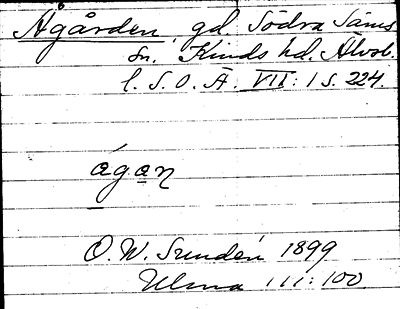 Ågården, gd. Södra Säms
sn. Kinds hd. Älvsb.
l. S.O.Ä. VII: 1 s. 224.
ágaɳ
O. W. Sundén 1899
Ulma 111:100.